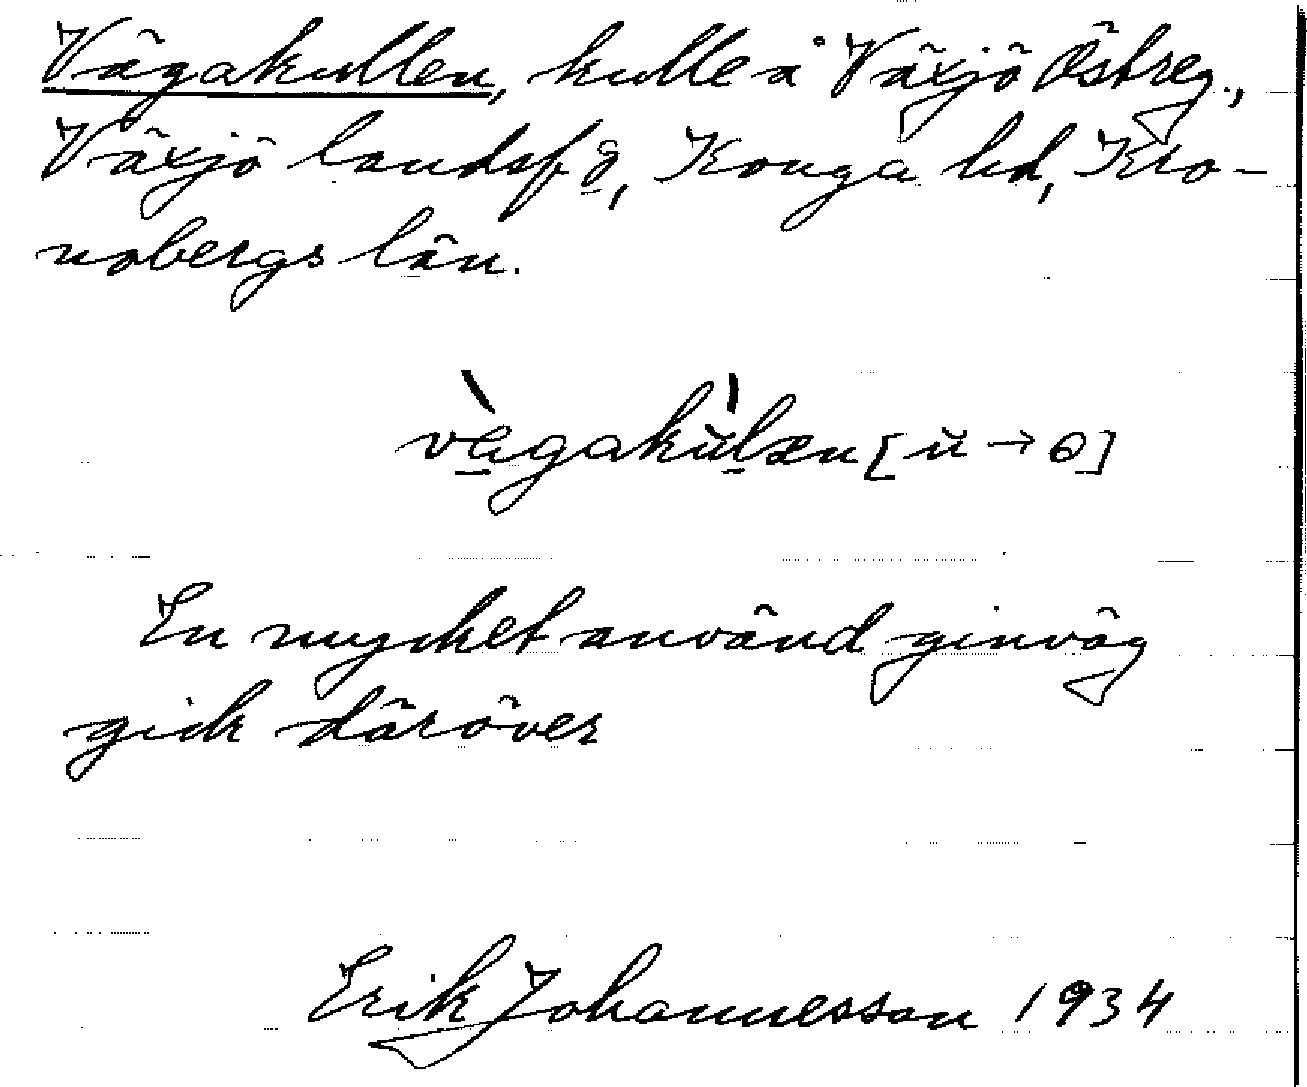 Vägakullen, kulle å Växjö Östreg.,
Växjö landsf ö, Konga hd, Kro-
nobergs län.
vägakùlæn [ŭ → ɵ]
En mycket använd genväg
gick däröver
Erik Johannesson 1934